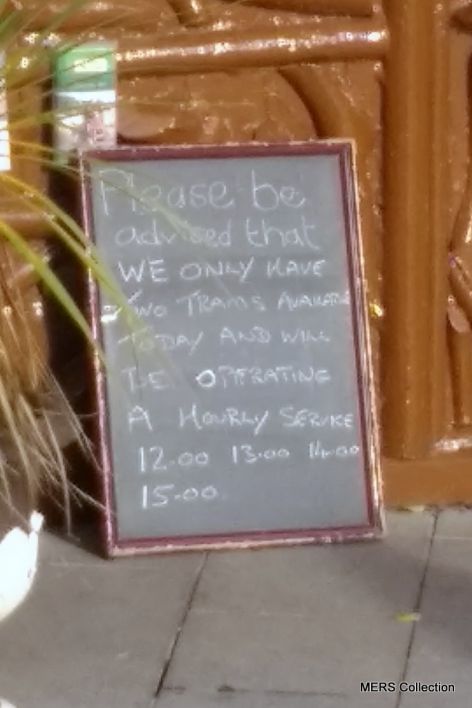 Please be
advised that
WE ONLY HAVE
TWO TRAMS AVAILABLE
TODAY AND WILL
BE OPERATING
A HOURLY SERVICE
12.00 13.00 14.00
15.00
MERS Collection